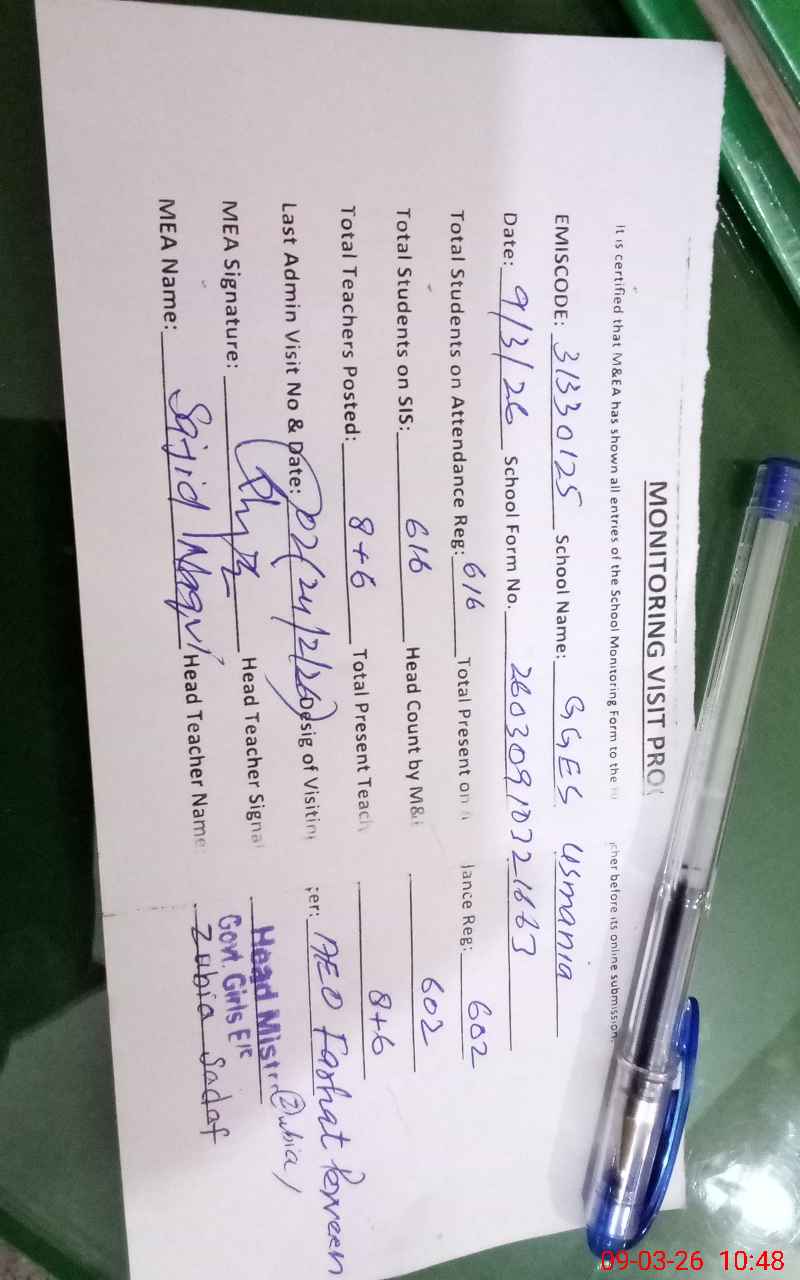 MONITORING VISIT PRO
It is certified that M&EA has shown all entries of the School Monitoring Form to the cher before its online submission.
EMISCODE: 31330125 School Name: GGES Usmania
Date: 9/3/26 School Form No. 26030910321663
Total Students on Attendance Reg: 616 Total Present on A dance Reg: 602
Total Students on SIS: 616 Head Count by M& 602
Total Teachers Posted: 8+6 Total Present Teach 8+6
Last Admin Visit No & Date: 02(24/2/26) Desig of Visitin er: AEO Farhat Perveen
MEA Signature: Head Teacher Signa Zubia
Head Mist
Govt. Girls E/E
MEA Name: Sajid Naqvi Head Teacher Name: Zubia Sadaf
09-03-26 10:48